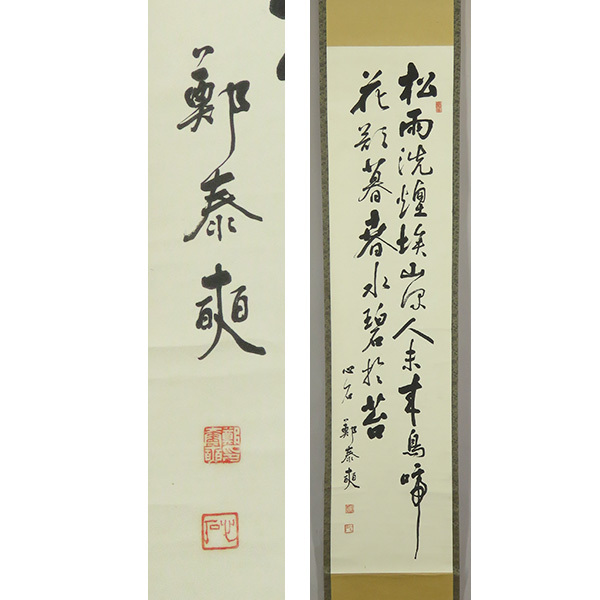 鄭泰奭
心石
松雨洗煙埃山深人未来鳥啼
花欲暮春水碧於苔
心石 鄭泰奭